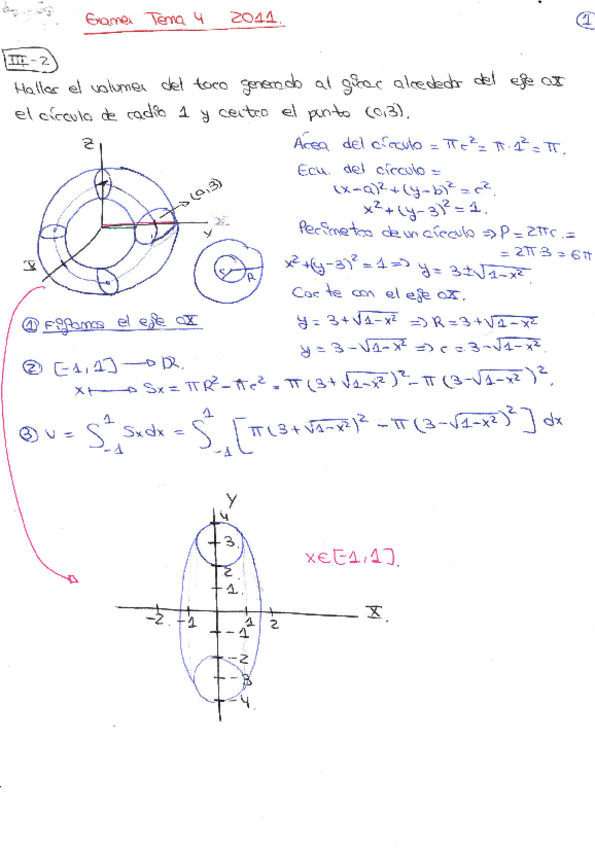 Examen Tema 4 2011.
1
III-2
Hallar el volumen del toro generado al girar alrededor del eje OX
el círculo de radio 1 y centro el punto (0,3).
Z
(0,3)
Y
X
R
Área del círculo = πr² = π·1² = π.
Ecu. del círculo =
(x-a)²+(y-b)² = r².
x²+(y-3)² = 1.
Perímetro de un círculo => P = 2πr. =
= 2π3 = 6π
x²+(y-3)² = 1 => y = 3±√1-x².
Corte con el eje OX.
y = 3+√1-x² => R = 3+√1-x²
y = 3-√1-x² => r = 3-√1-x².
① Fijamos el eje OX
② [-1,1] → R.
x ↦ Sx = πR²-πr² = π(3+√1-x²)² - π(3-√1-x²)².
③ V = ∫₋₁¹ Sxdx = ∫₋₁¹ [π(3+√1-x²)² - π(3-√1-x²)²] dx
Y
4
3.
x∈[-1,1].
2
1.
-2. -1 1 2 X.
-1
-2
-3
-4.